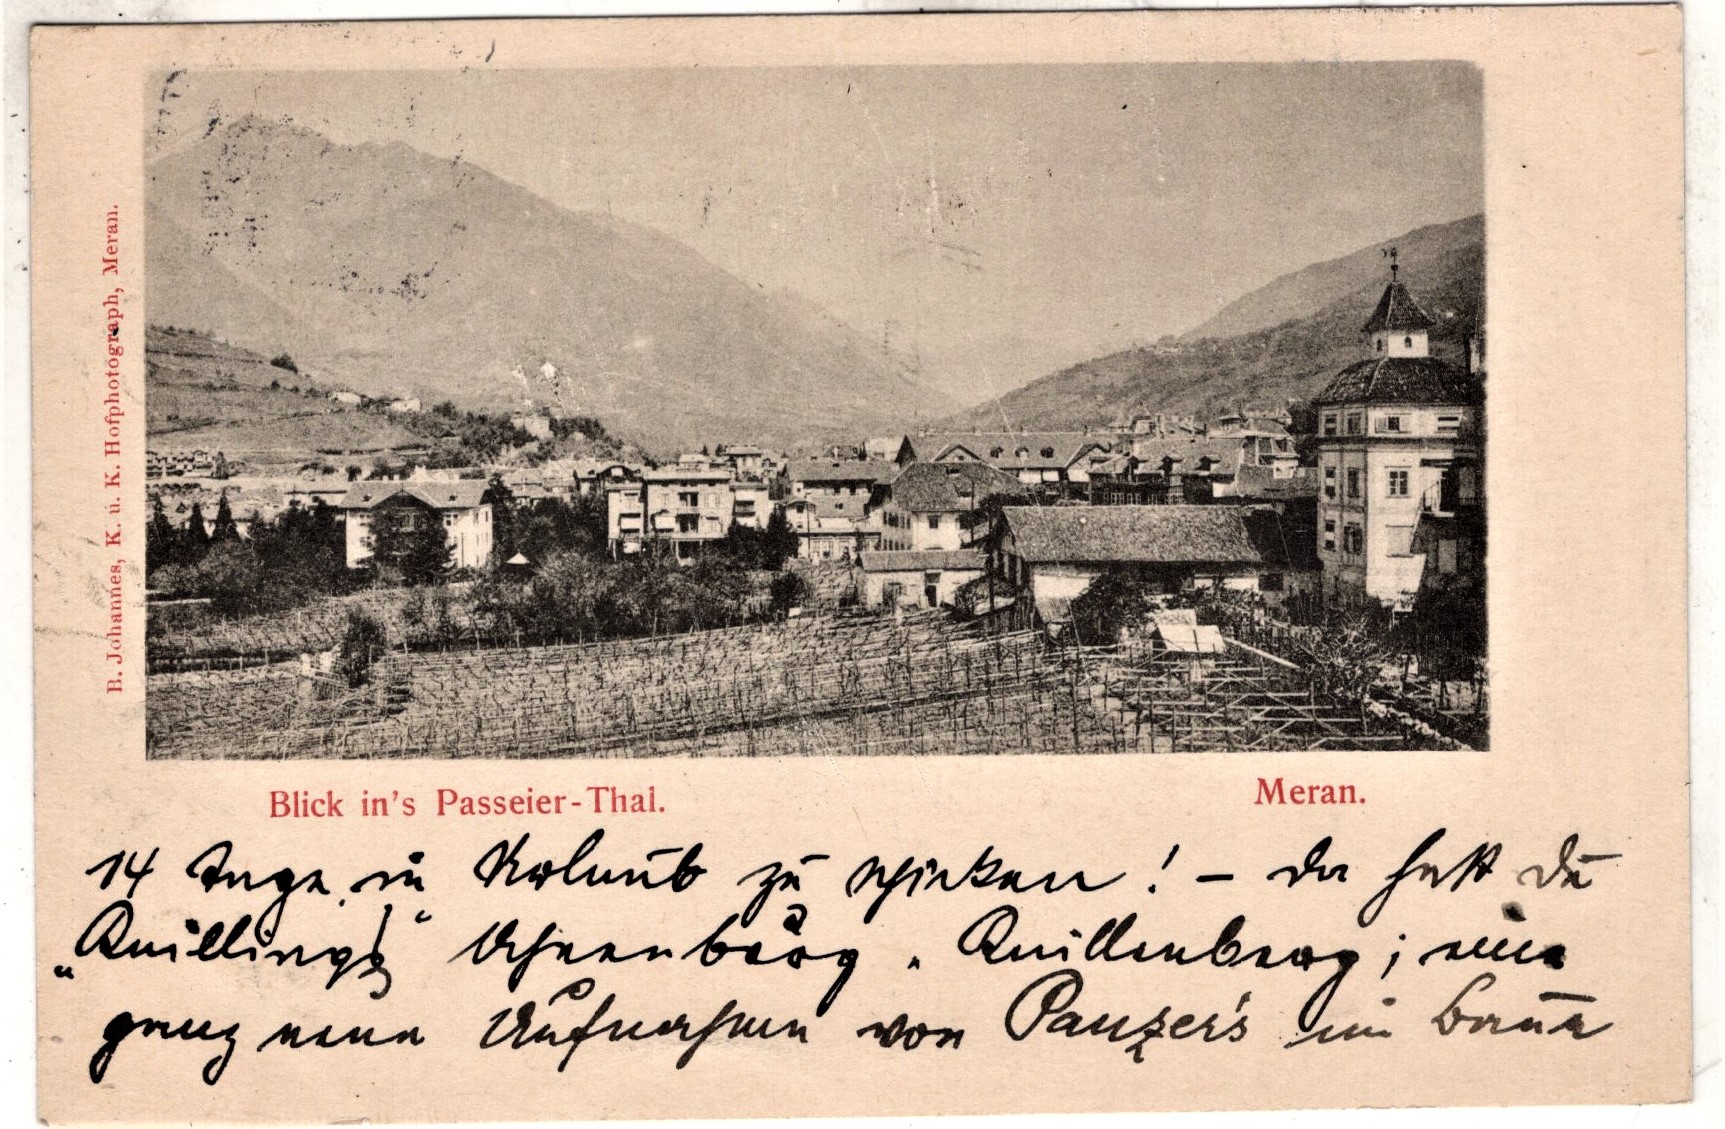 B. Johannes, K. u. K. Hofphotograph, Meran.
Blick in's Passeier-Thal.
Meran.
14 Tage in Urlaub zu schicken! – Da hast Du
"Quilling's" Ahrenbörg. Quillenberg; eine
ganz neue Aufnahme von Panzer's im